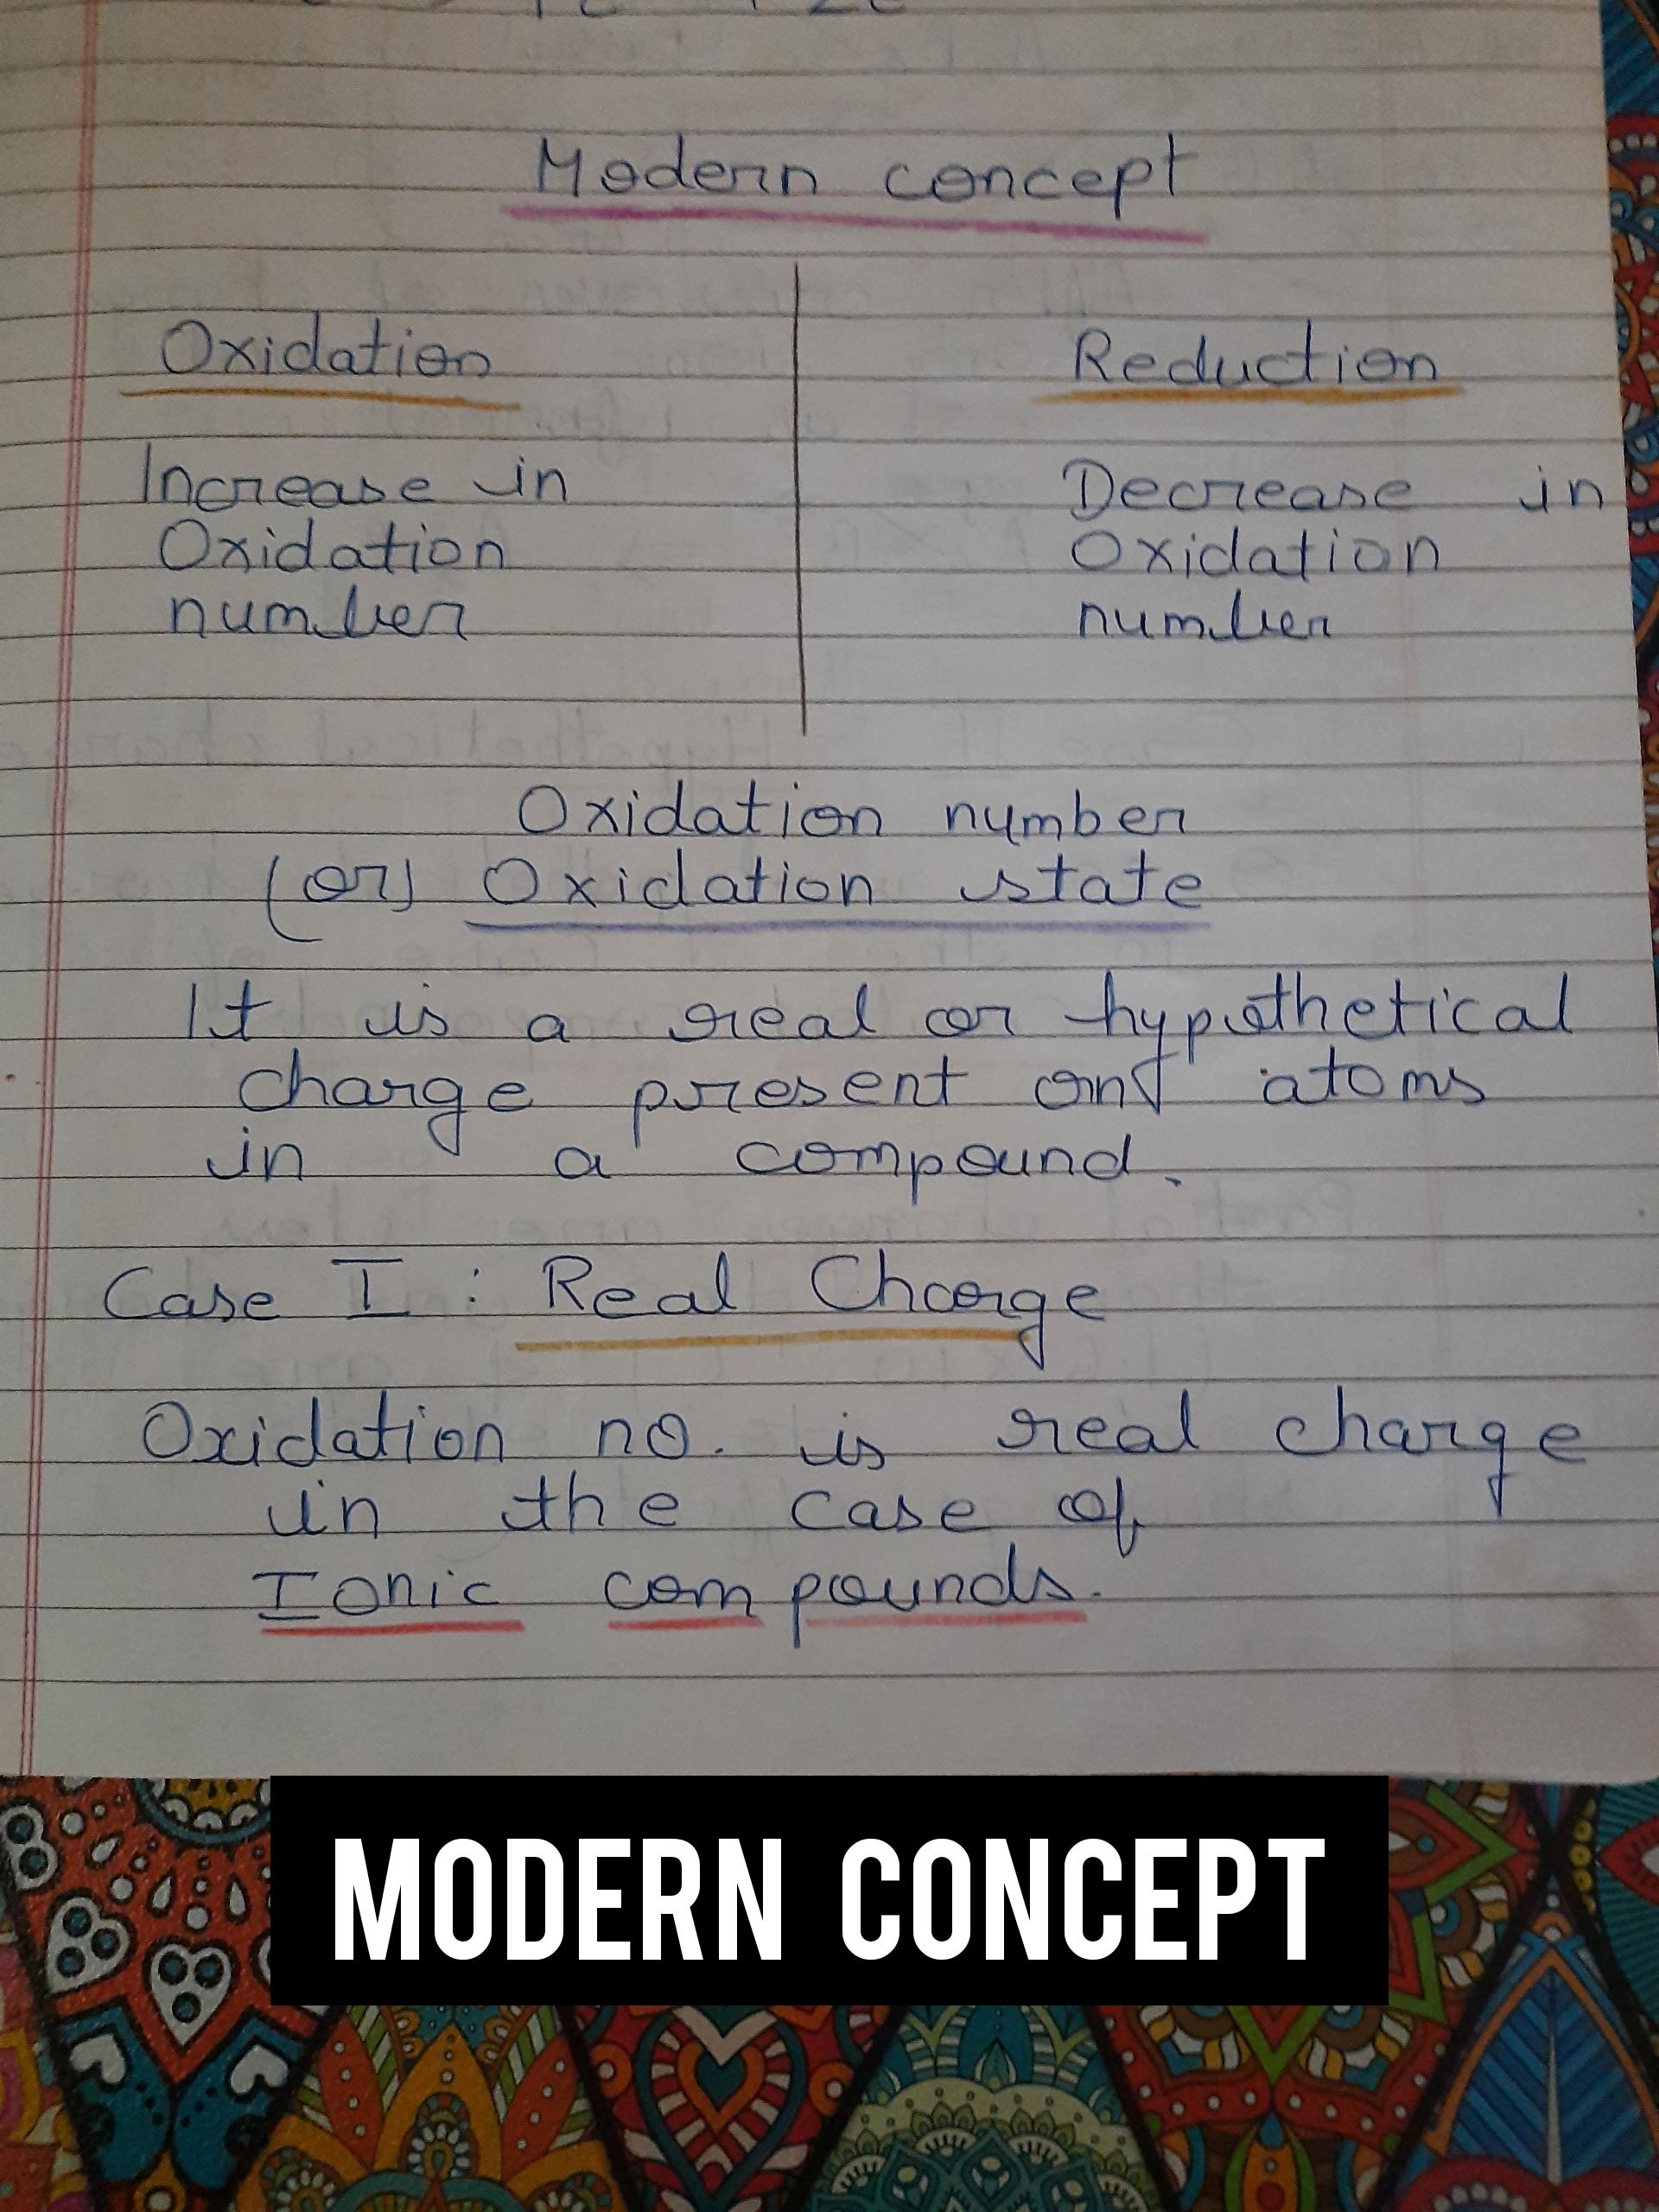 Modern concept
Oxidation
Reduction
Increase in
Oxidation
number
Decrease in
Oxidation
number
Oxidation number
(or) Oxidation state
It is a real or hypothetical
charge present on atoms
in a compound.
Case I : Real Charge
Oxidation no. is real charge
in the case of
Ionic compounds.
MODERN CONCEPT